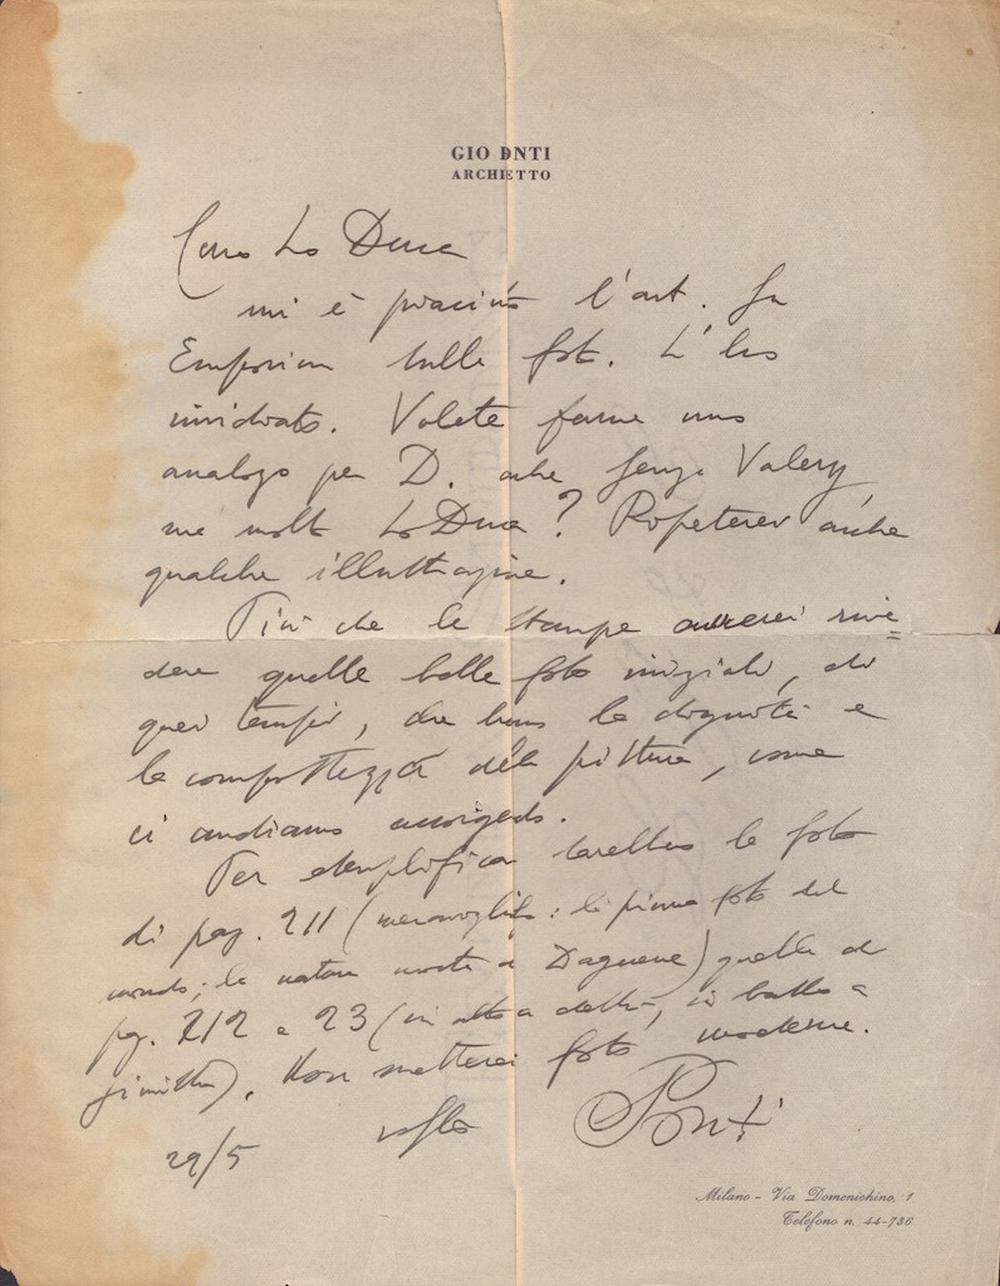 GIO PONTI
ARCHIETTO
Caro Lo Duca
mi è piaciuto l'art. su
Emporium sulle foto. L'ho
invidiato. Volete farne uno
analogo per D. anche senza Valery,
ma molto Lo Duca? Ripeterei anche
qualche illustrazione.
Più che le stampe vorrei rive=
dere quelle belle foto iniziali, di
quei tempi, che hanno la dignità e
la compostezza della pittura, come
ci andiamo accorgendo.
Per esemplificare sarebbero le foto
di pag. 211 (meravigliosa: la prima foto del
mondo; la natura morta di Daguerre) quelle di
pag. 212 e 23 (in alto a destra, in basso a
sinistra). Non metterei foto moderne.
vostro Ponti
29/5
Milano - Via Domenichino, 1
Telefono n. 44-736